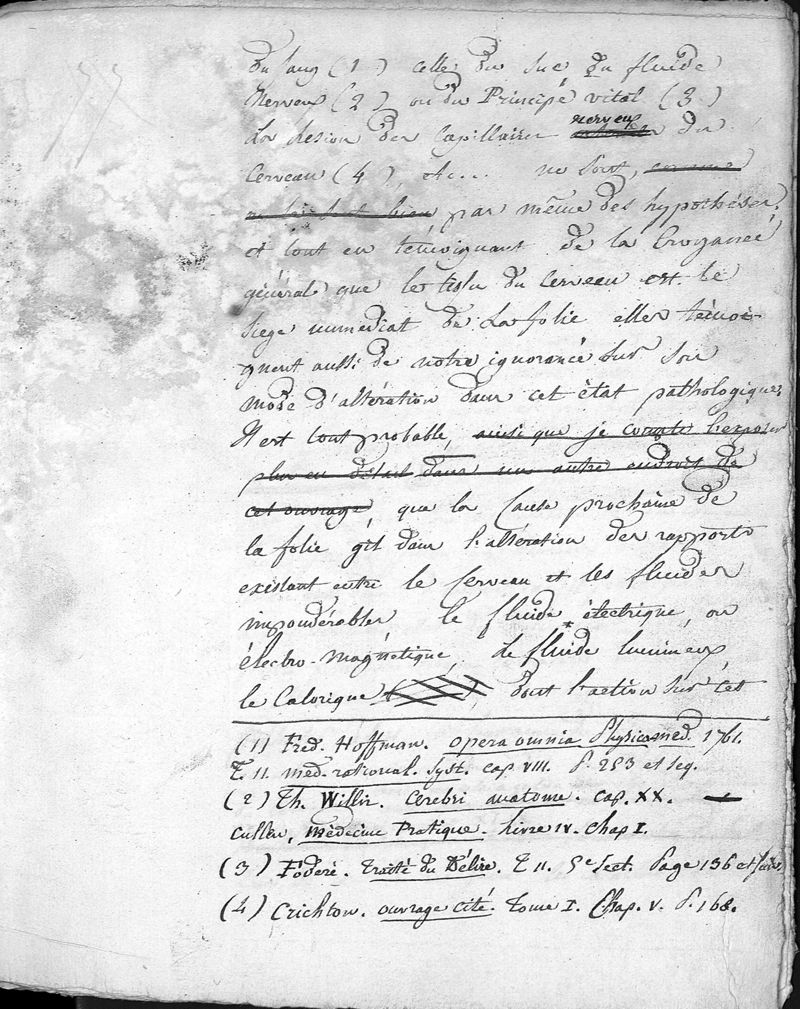 du sang (1) celle du suc du fluide
Nerveux (2) ou du Principe vital (3)
La Lesion des Capillaires nerveux du
Cerveau (4), &c... ne sont,
pas même des hypothéses,
et tout en témoignant de la Croyance
général que le tissu du Cerveau est le
siege immediat de La folie elles témoi-
gnent aussi de notre ignorance sur son
mode d'altération dans cet état pathologique.
Il est tout probable, ainsi que je compte l'exposer
plus en détail dans un autre endroit de
cet ouvrage, que la Cause prochaine de
la folie git dans l'altération des rapports
existant entre le Cerveau et les fluides
impondérables le fluide électrique, ou
électro-magnétique, Le fluide lumineux
le Calorique, dont l'action sur cet
(1) Fred. Hoffman. opera omnia Physico med. 1761.
T. 11. med. rational. syst. cap VIII. P. 253 et seq.
(2) Th. Willis. Cerebri anatome. cap. XX.
Cullen, Médecine Pratique. Livre IV. Chap I.
(3) Fodéré. Traité du Délire. T 11. 5e Sect. Page 136 et suiv.
(4) Crichton. ouvrage cité. Tome I. Chap. V. P. 168.